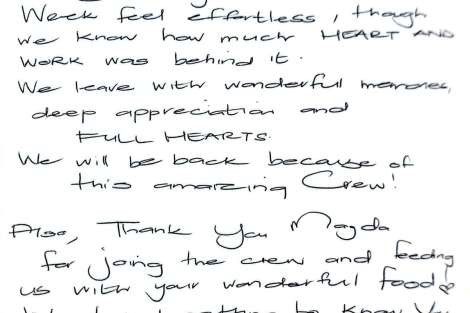 Week feel effortless, though
we know how much HEART AND
WORK was behind it.
We leave with wonderful memories,
deep appreciation and
FULL HEARTS.
We will be back because of
this amazing Crew!
Also, Thank You Magda
for joing the crew and feeding
us with your wonderful food
to know You